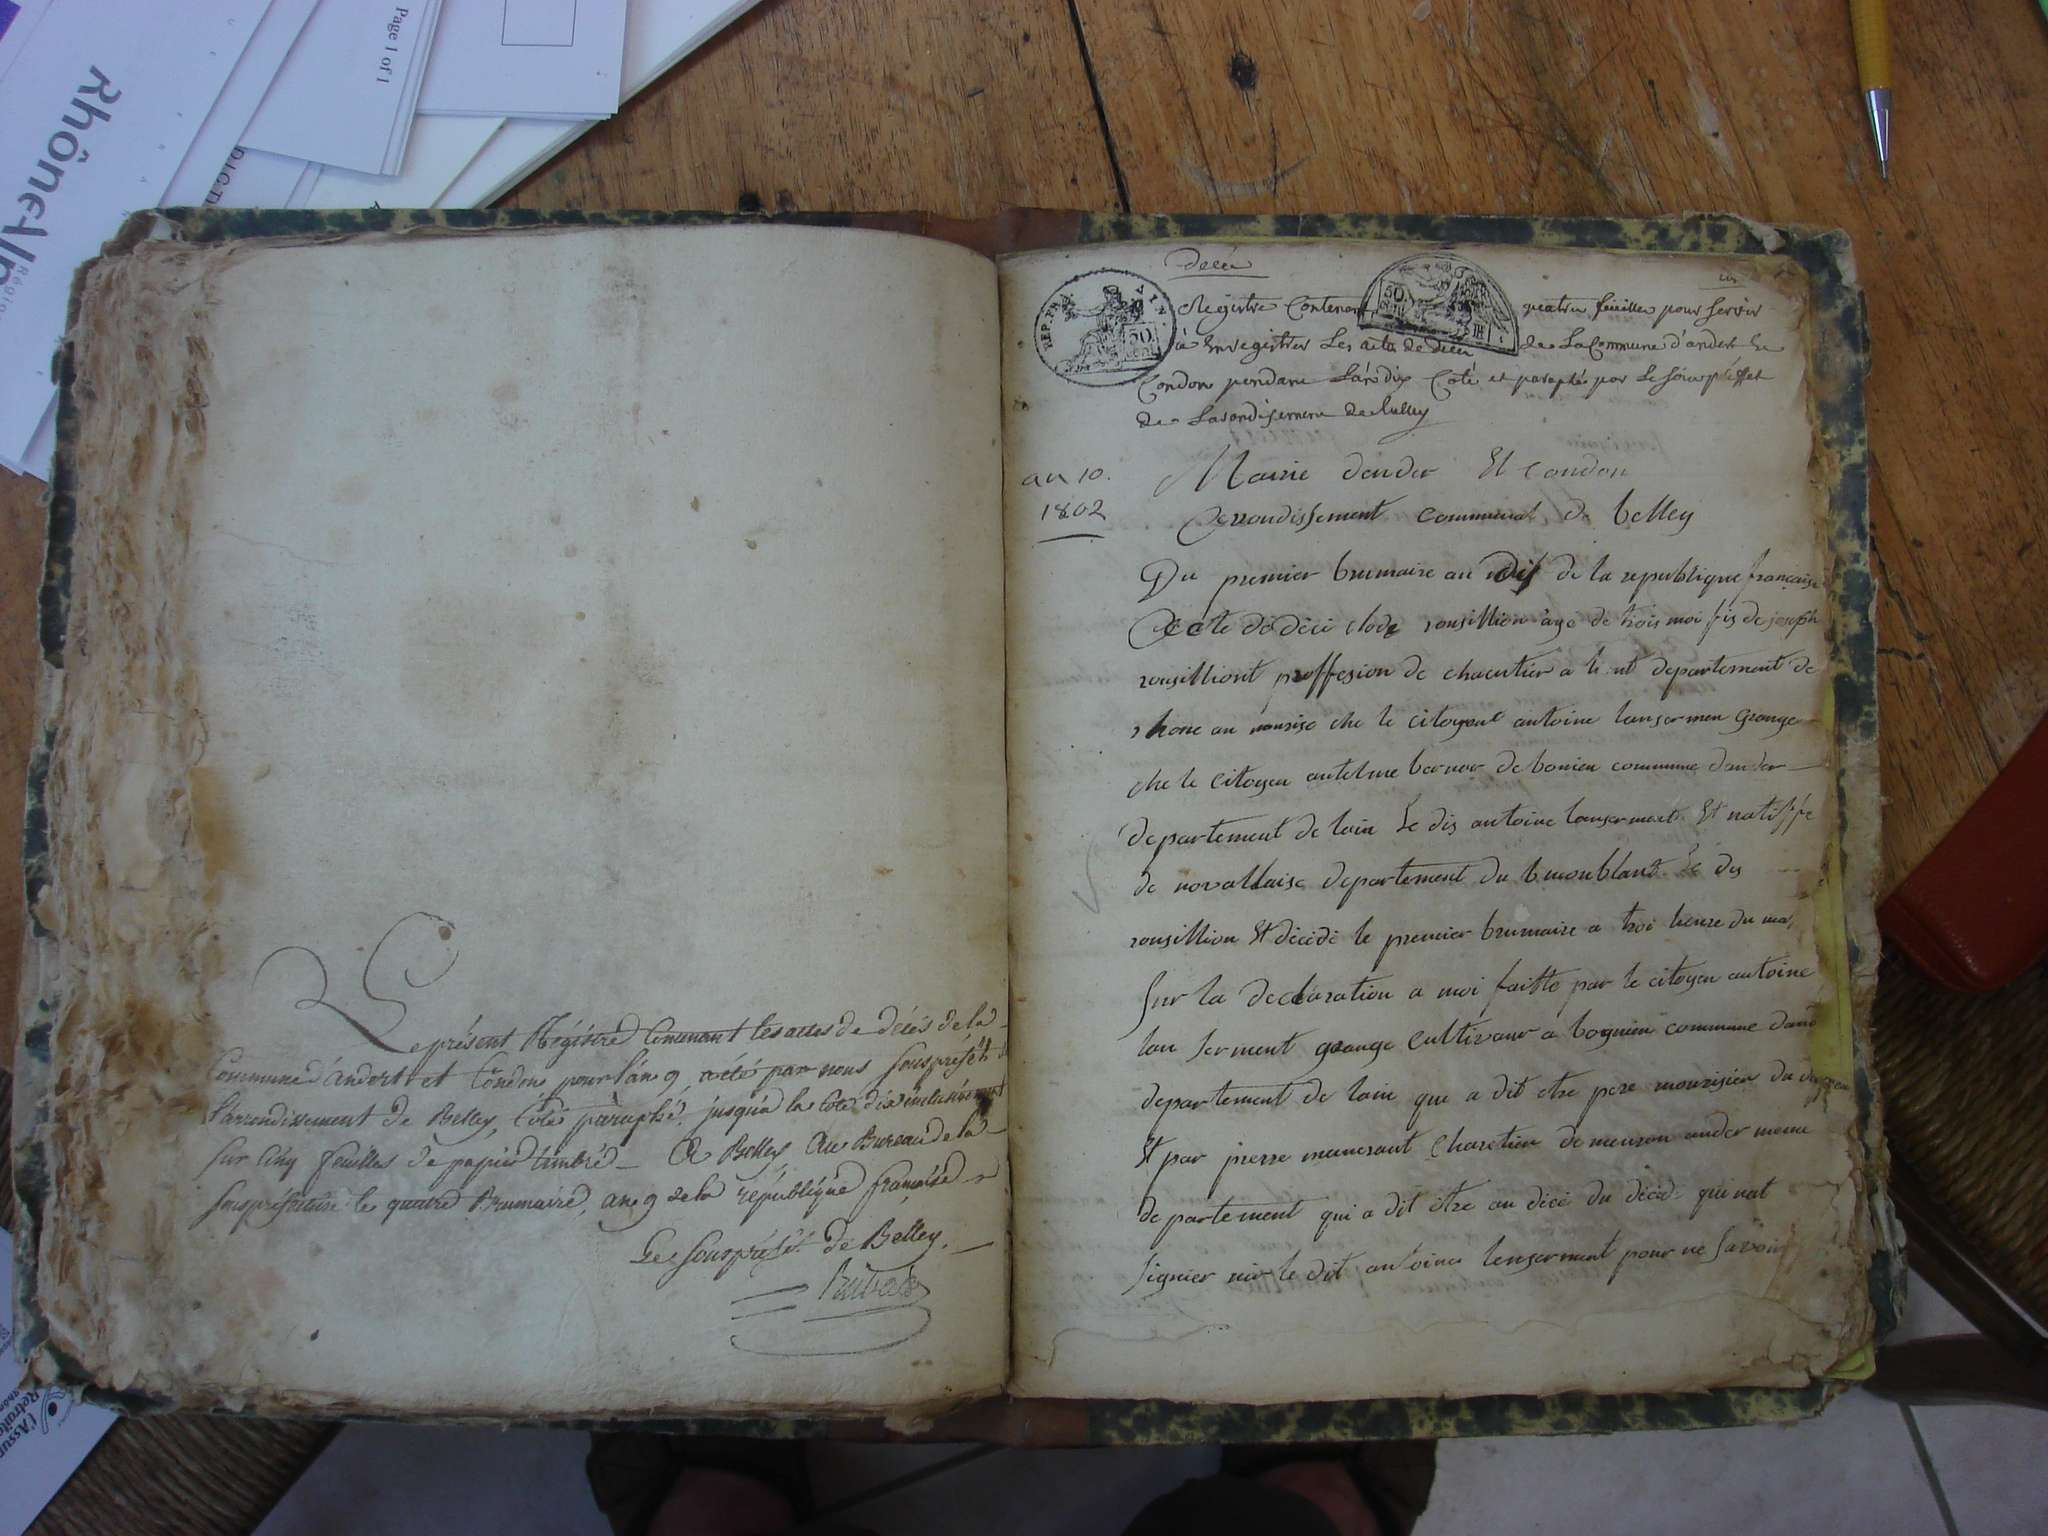 Rhône-Alp
Page 1 of 1
Le présent Régistre Contenant les actes de décès de la
Commune d'andert et Condon pour l'an 9, a été par nous Souspréfêt
l'arrondissement de Belley, Côté paraphé jusqu'à la Cote dix inclusivement
sur Cinq feuilles de papier timbré _ A Belley Au Bureau de la
Souspréfecture le quatre Brumaire, an 9 de la république française
Le Souspréfêt de Belley.
décè
REP. FRA.
50
Registre Contenant quatre feuilles pour servir
à Enregistrer Les actes de décè de La Commune d'andert Et
Condon pendant L'an dix Coté et paraphé par Le Sous préffet
de L'arondisement de bulley
an 10.
1802
Mairie dander Et Condon
arrondissement communal de belley
Du premier brumaire an dis de la republique française
acte de déce clode rousillion âge de trois moi fis de joseph
rousilliont proffesion de chacutier a departement de
rhone an nourise che le citoyent antoine lansermen granger
che le citoyen antelme bernor de bonien commune dander
departement de lain Le dis antoine lansermet Et natiffe
de novallaise departement du bmonblant Le dis
rousillion Et décédé le premier brumaire a troi heure du ma
sur la declaration a moi faitte par le citoyen antoine
lan serment grange cultivaur a bognien commune dand
departement de lain que a dit etre pere nourisien du
Et par pierre charetien de menson ander meme
departement qui a dit être au décè du décéde qui nat
signier nis le dit antoine lenserment pour ne savoir
l'Assur
Retraite